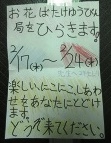 お花はたけゆうびん
局をひらきます。
2/17(水)～2/24(水)
楽しい、にこにこしあわ
せをあなたにとどけ
ます。
どうぞ来てください。